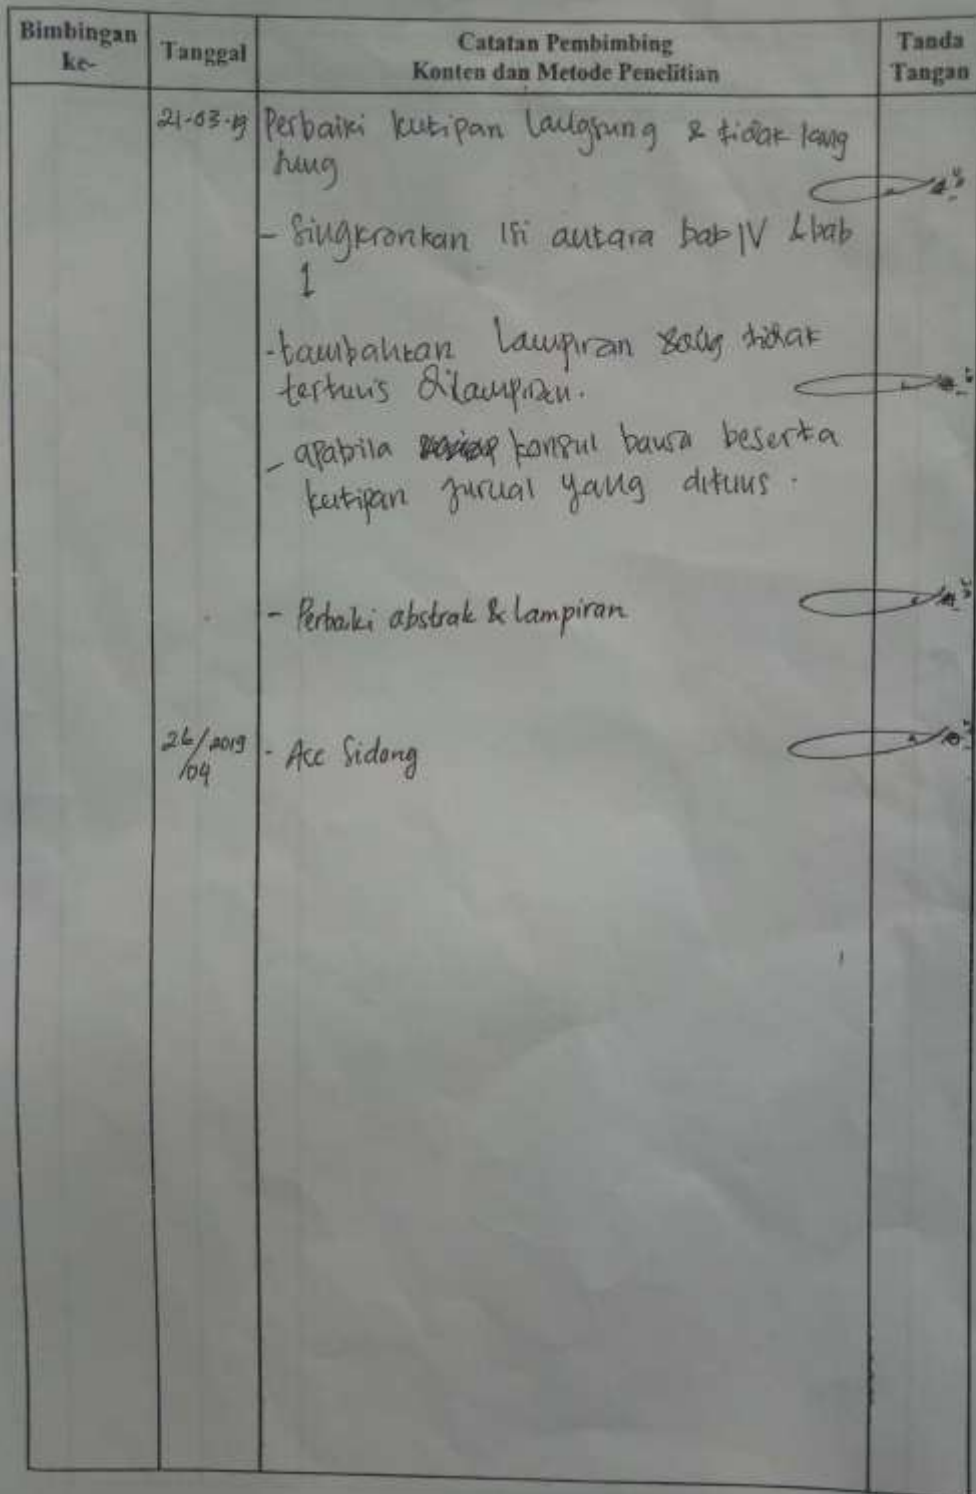 Bimbingan ke-
Tanggal
Catatan Pembimbing
Konten dan Metode Penelitian
Tanda Tangan
21-03-19
Perbaiki kutipan langsung & tidak lang
sung
- Singkronkan isi antara bab IV & bab
1
- tambahkan Lampiran yang tidak
tertulis dilampiran.
- apabila konsul bawa beserta
kutipan jurnal yang ditulis.
- Perbaiki abstrak & lampiran
26/2019
/04
- Acc Sidang